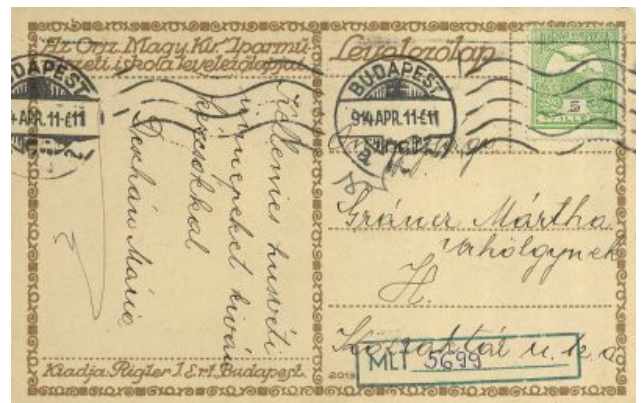 Az Orsz. Magy. Kir. Iparmű-
vészeti iskola levelezőlapjai
Levelezőlap
BUDAPEST
914 APR. 11-E11
BUDAPEST
914 APR. 11-E11
5
Kellemes husvéti
ünnepeket kíván
kézcsókkal
Mária
Mártha
úrhölgynek
H.
u.
MLT 5699
Kiadja Rigler J. Ert. Budapest.